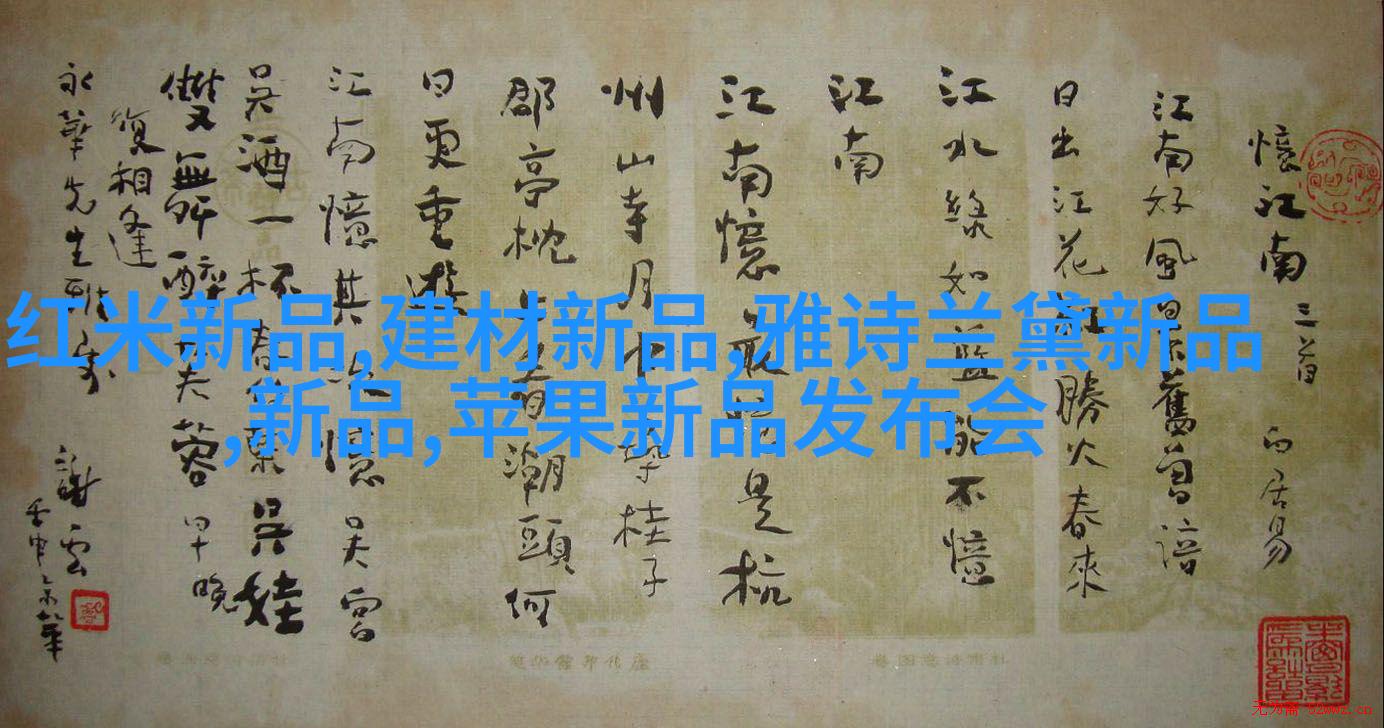 憶江南 三首 白居易
江南好風景舊曾諳
日出江花紅勝火春來
江水綠如藍能不憶
江南
江南憶最憶是杭
州山寺月中尋桂子
郡亭枕上看潮頭何
日更重遊
江南憶其次憶吳宮
吳酒一杯春竹葉吳娃
雙舞醉芙蓉早晚
復相逢
永華先生雅
謝雲
壬申
红米新品,建材新品,雅诗兰黛新品
,新品,苹果新品发布会